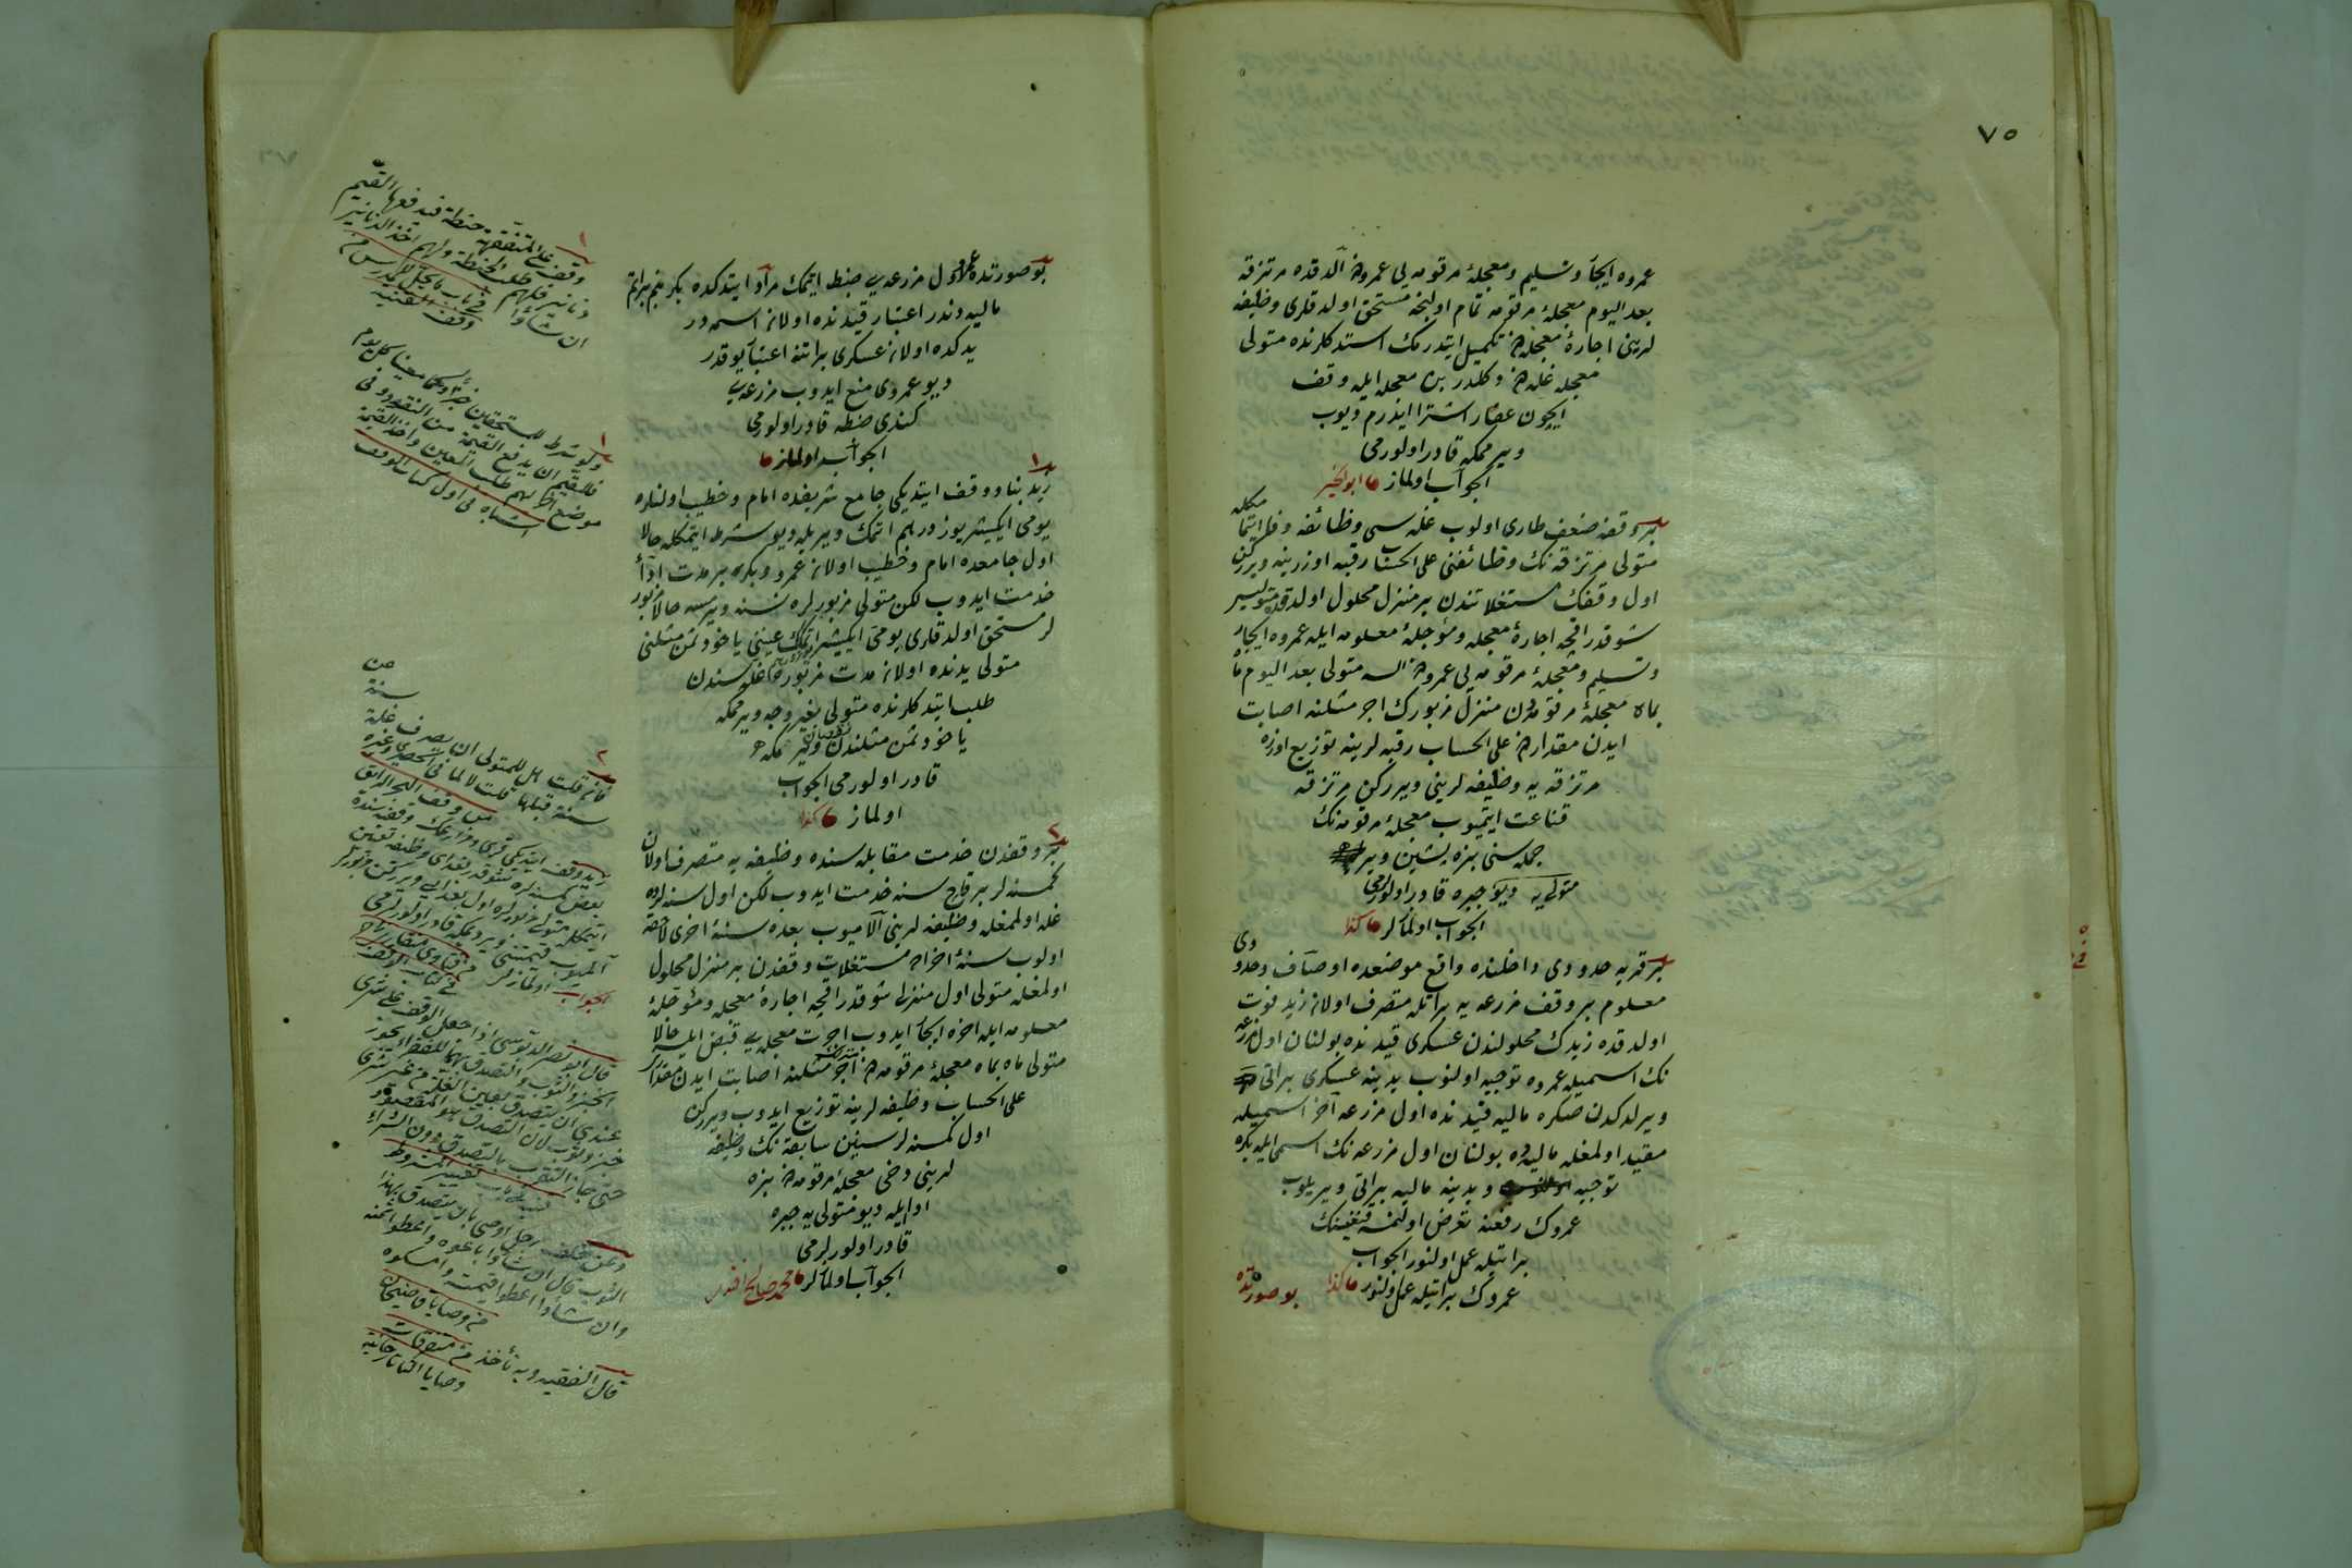 ٧٥
عمروه ايجار وتسليم ومعجلۀ مرقومه يى عمرودن الدقده مرتزقه
بعد اليوم معجلۀ مرقومه تمام اولنجه مستحق اولدقلرى وظيفه
لرينى اجارۀ معجله دن تكميل ايتدرمك استدكلرنده متولى
معجله غله دن دكلدر بن معجله ايله وقف
ايچون عقار اشترا ايدرم ديوب
ويرممكه قادر اولورمى
الجواب اولماز ابو الخير
بر وقفه ضعف طارى اولوب غله سى وظائفه وفا ايتمامكله
متولى مرتزقه نك وظائفنى على الحساب رقبه اوزرينه ويرركن
اول وقفك مستغلاتندن بر منزل محلول اولدقده متوليسى
شو قدر اقچه اجارۀ معجله ومؤجلۀ معلومه ايله عمروه ايجار
وتسليم ومعجلۀ مرقومه يى عمرودن السه متولى بعد اليوم ماه
بماه معجلۀ مرقومه دن منزل مزبورك اجر مثلنه اصابت
ايدن مقدارى على الحساب رقبه لرينه توزيع اوزره
مرتزقه يه وظيفه لرينى ويرركن مرتزقه
قناعت ايتميوب معجلۀ مرقومه نك
جمله سنى بزه پشين وير
متولى يه ديو جبره قادر اولورلرمى
الجواب اولمازلر كذا
بر قريه حدودى داخلنده واقع موضعده اوصاف وحدودى
معلوم بر وقف مزرعه يه براتله متصرف اولان زيد فوت
اولدقده زيدك محلولندن عسكرى قيدنده بولنان اول مزرعه
نك اسميله عمروه توجيه اولنوب يدينه عسكرى براتى
ويرلدكدن صكره ماليه قيدنده اول مزرعه آخر اسميله
مقيد اولمغله ماليه ده بولنان اول مزرعه نك اسمى ايله بكره
توجيه ويدينه ماليه براتى ويريلوب
عمروك رفعنه تعرض اولنمسه قنغيسنك
براتيله عمل اولنور الجواب
عمروك براتيله عمل اولنور كذا
بو صورتده
بو صورتده عمرو اول مزرعه يى ضبط ايتمك مراد ايتدكده بكر بنم براتم
ماليه دندر اعتبار قيدنده اولان اسمه در
يدكده اولان عسكرى براتنه اعتبار يوقدر
ديو عمروى منع ايدوب مزرعه يى
كندى ضبطه قادر اولورمى
الجواب اولماز
زيد بنا ووقف ايتديكى جامع شريفده امام وخطيب اولنلره
يومى ايكيشر يوز درهم اتمك ويريله ديو شرط ايتمكله حالا
اول جامعده امام وخطيب اولان عمرو وبكره بر مدت ادآء
خدمت ايدوب لكن متولى مزبورلره نسنه ويرمسه حالا مزبور
لر مستحق اولدقلرى يومى ايكيشر اتمك عينى ياخود ثمن مثلنى
متولى يدنده اولان مدت مزبوره غله سندن
طلب ايتدكلرنده متولى بغير وجه ويرممكه
ياخود ثمن مثلندن نقصان ويرمكه
قادر اولورمى الجواب
اولماز كذا
بر وقفدن خدمت مقابله سنده وظيفه يه متصرف اولان
كمسنه لر بر قاچ سنه خدمت ايدوب لكن اول سنه لرده
غله اولمغله وظيفه لرينى آلاميوب بعده سنۀ اخرى لاحقه
اولوب سنۀ اخراده مستغلات وقفدن بر منزل محلول
اولمغله متولى اول منزلى شو قدر اقچه اجارۀ معجله ومؤجلۀ
معلومه ايله آخره ايجار ايدوب اجرت معجله يى قبض ايلسه حالا
متولى ماه بماه معجلۀ مرقومه دن اجر مثلنه اصابت ايدن مقدار
على الحساب وظيفه لرينه توزيع ايدوب ويرركن
اول كمسنه لر سنين سابقه نك وظيفه
لرينى دخى معجلۀ مرقومه دن بزه
ادا ايله ديو متولى يه جبره
قادر اولورلرمى
الجواب اولمازلر محمد صالح افندى
وقف على المتفقهة حنطة فيدفعها القيم
دنانير فلهم طلب الحنطة ولهم اخذ الدنانير
ان شاؤا
وقف القنيه
ولو شرط للمستحقين خبزا ولحما معينا كل يوم
فللقيم ان يدفع القيمة من النقد وفى
موضع آخر لهم طلب المعين واخذ القيمة
اشباه فى اول كتاب الوقف
فان قلت هل للمتولى ان يصرف غلة سنة من
سنة قبلها قلت لا لما فى الحصيرى وغيره
من وقف البحر الرائق
زيد وقف ايتديكى قرى ومزارعك وقفيه سنده
بعض كمسنه لره شو قدر بغداى وظيفه تعيين
ايتمكله متولى مزبورلره اول بغدايى ويرركن مزبورلر
آلميوب قيمتنى ويرديمكه قادر اولورلرمى
الجواب اولمازلر
فى كتاب الوقف
قال ابو نصر الدبوسى اذا جعل الوقف على شرى
الخبز والثوب والتصدق بهما للفقراء يجوز
عندى ان يتصدق بعين الغلة من غير شرى
خبز وثوب لان التصدق هو المقصود
حتى جاز التقرب بالتصدق دون الشراء
وعن خلف رجل اوصى بان يتصدق بهذا
الثوب قال ان شاؤا باعوه واعطوا ثمنه
وان شاؤا اعطوا قيمته وامسكوه
من وصايا قاضيخان
قال الفقيه وبه نأخذ من متفرقات
وصايا التاتارخانيه